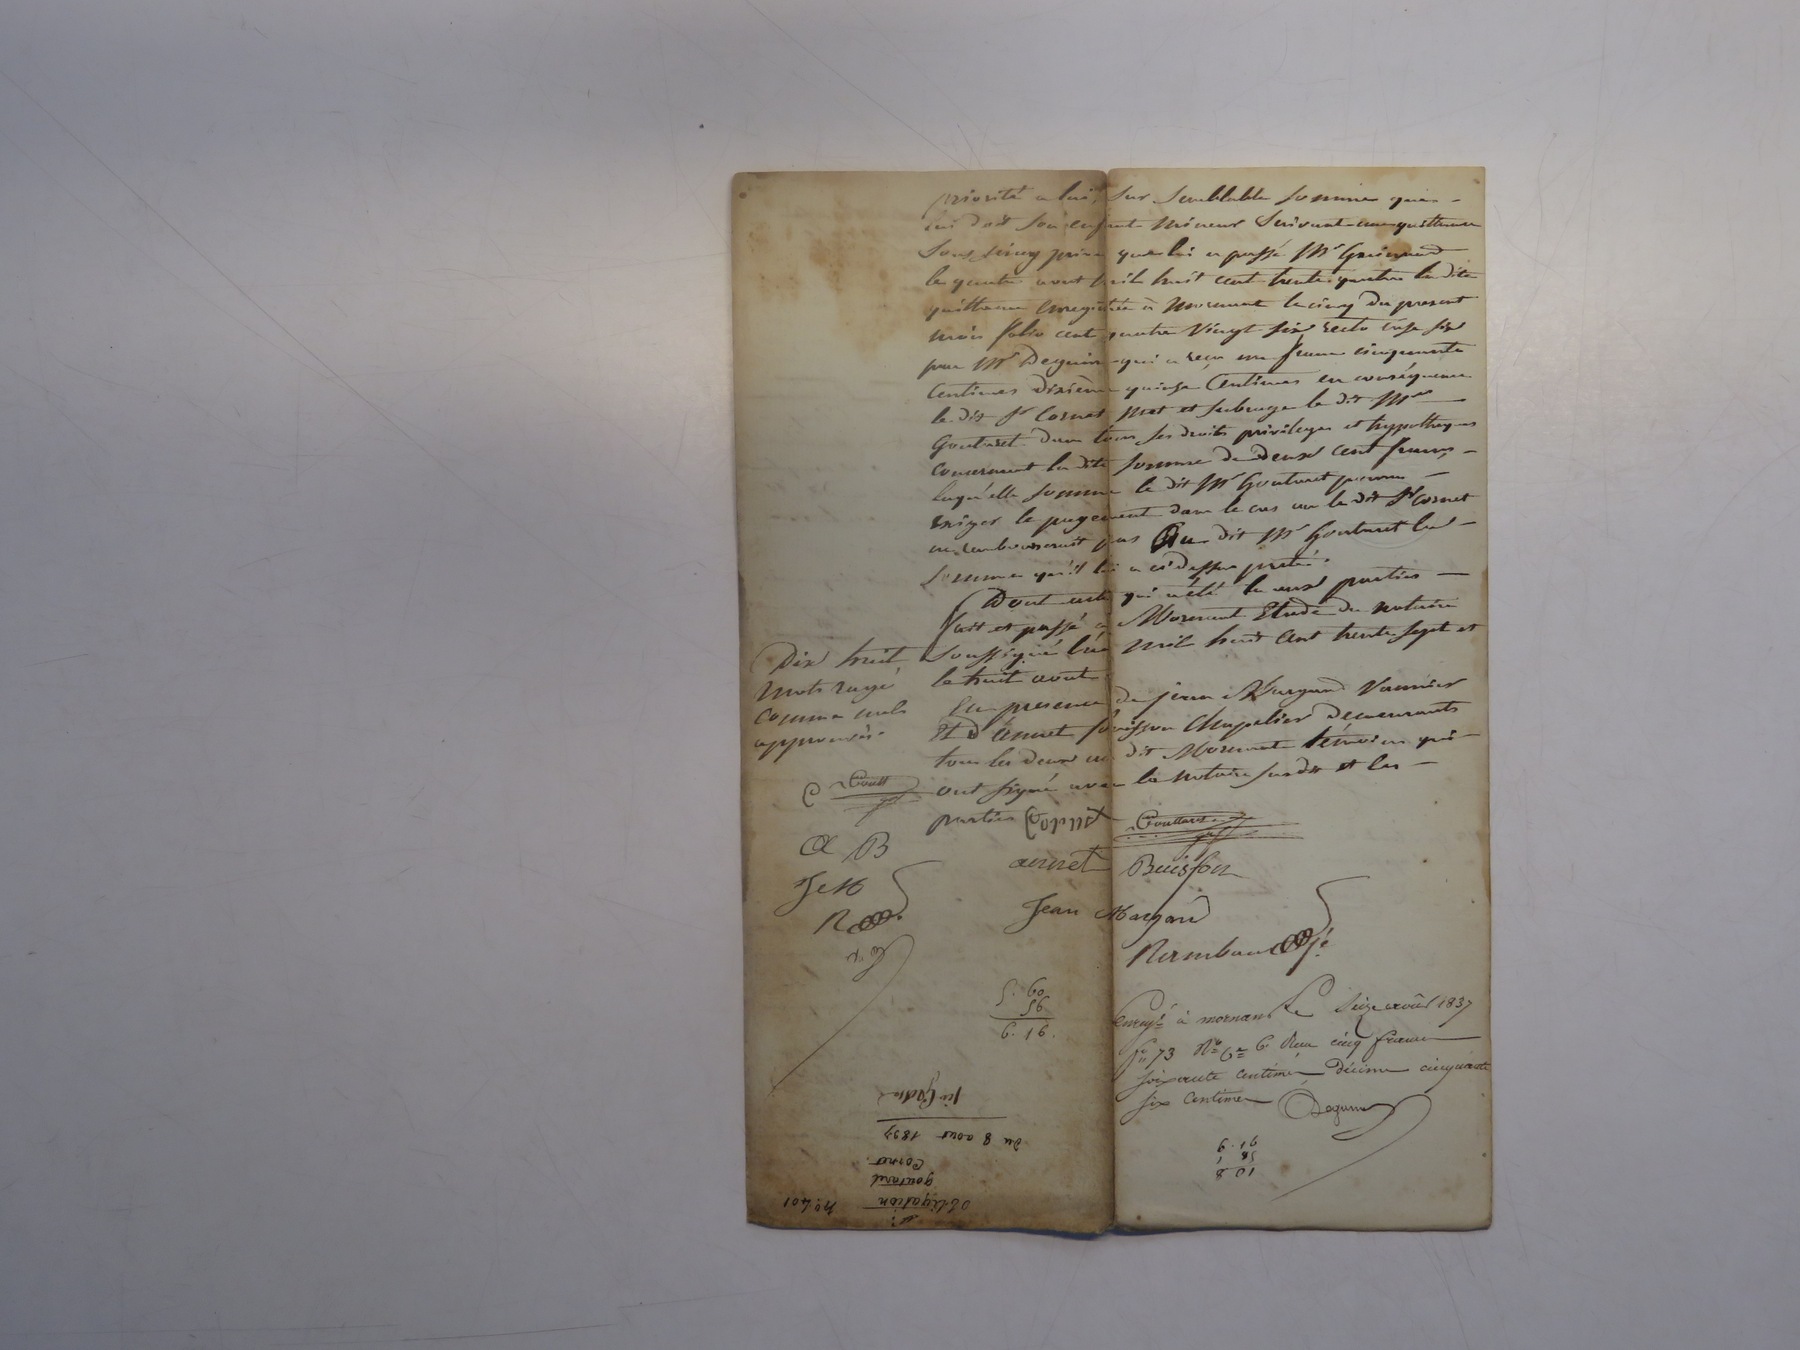 priorité a lui, sur semblable somme que
lui doit son enfant mineur suivant une quittance
sous seing privé que lui a passé Mr
le quatre aout mil huit cent trente quatre la dite
quittance enregistrée à Mornant le cinq du present
mois folio cent quatre vingt six recto case six
par Mr Deguine qui a reçu un franc cinquante
centimes dixieme quinze centimes en conséquence
le dit Sr Cornet met et subroge le dit Mr
Goutaret dans tous ses droits privileges et hypotheques
concernant la dite somme de deux cent francs
laquelle somme le dit Mr Goutaret pourra
exiger le payement dans le cas ou le dit Sr Cornet
ne rembourserait pas au dit Mr Goutaret la
somme qu'il lui a ci dessus preté.
Dont acte qui a été lu aux parties
fait et passé a Mornant Etude du notaire
soussigné l'an mil huit cent trente sept et
le huit aout
En presence de jean Margand Vannier
Et d'annet Buisson Chapelier demeurants
tous les deux au dit Mornant témoins qui
ont signé avec le notaire susdit et les
parties
Dix huit
mots rayé
comme nuls
approuvés.
C Goutt
A B
JeM
R
annet Buisson
Jean Margand
5. 60
56
6. 16.
Enregé à mornant Le Seize août 1837
fo 73 Ro Ce 6 Reçu cinq francs
soixante centimes, Décime cinquante
six centimes
6. 16
1 58
8 01
No 401
obligation
goutaret
Cornet.
du 8 aout 1837